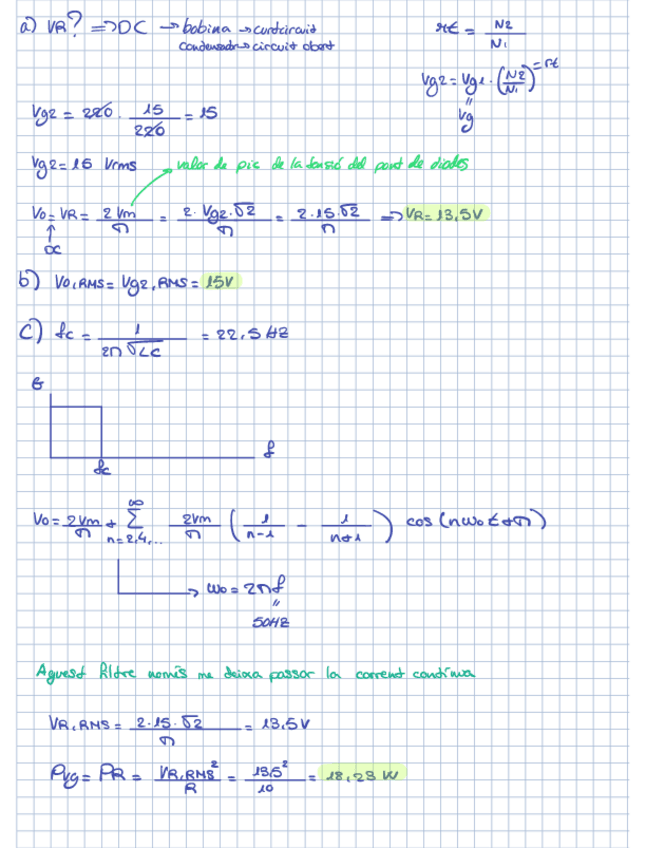 a) VR? => DC → bobina → curtcircuit
condensador → circuit obert
rt = N2/N1
Vg2 = Vg1 · (N2/N1) = rt
"
Vg
Vg2 = 220 · 15/220 = 15
Vg2 = 15 Vrms
valor de pic de la tensió del pont de díodes
Vo = VR = 2Vm/π = 2·Vg2·√2/π = 2·15·√2/π → VR = 13,5V
↑
DC
b) Vo,RMS = Vg2,RMS = 15V
c) fc = 1/2π√LC = 22,5 HZ
G
f
fc
Vo = 2Vm/π + ∞ Σ n=2,4,... 2Vm/π (1/n-1 - 1/n+1) cos(nωot+π)
→ ωo = 2πf
"
50HZ
Aquest filtre només me deixa passar la corrent contínua
VR,RMS = 2·15·√2/π = 13,5V
Pvg = PR = VR,RMS²/R = 13,5²/10 = 18,23 W